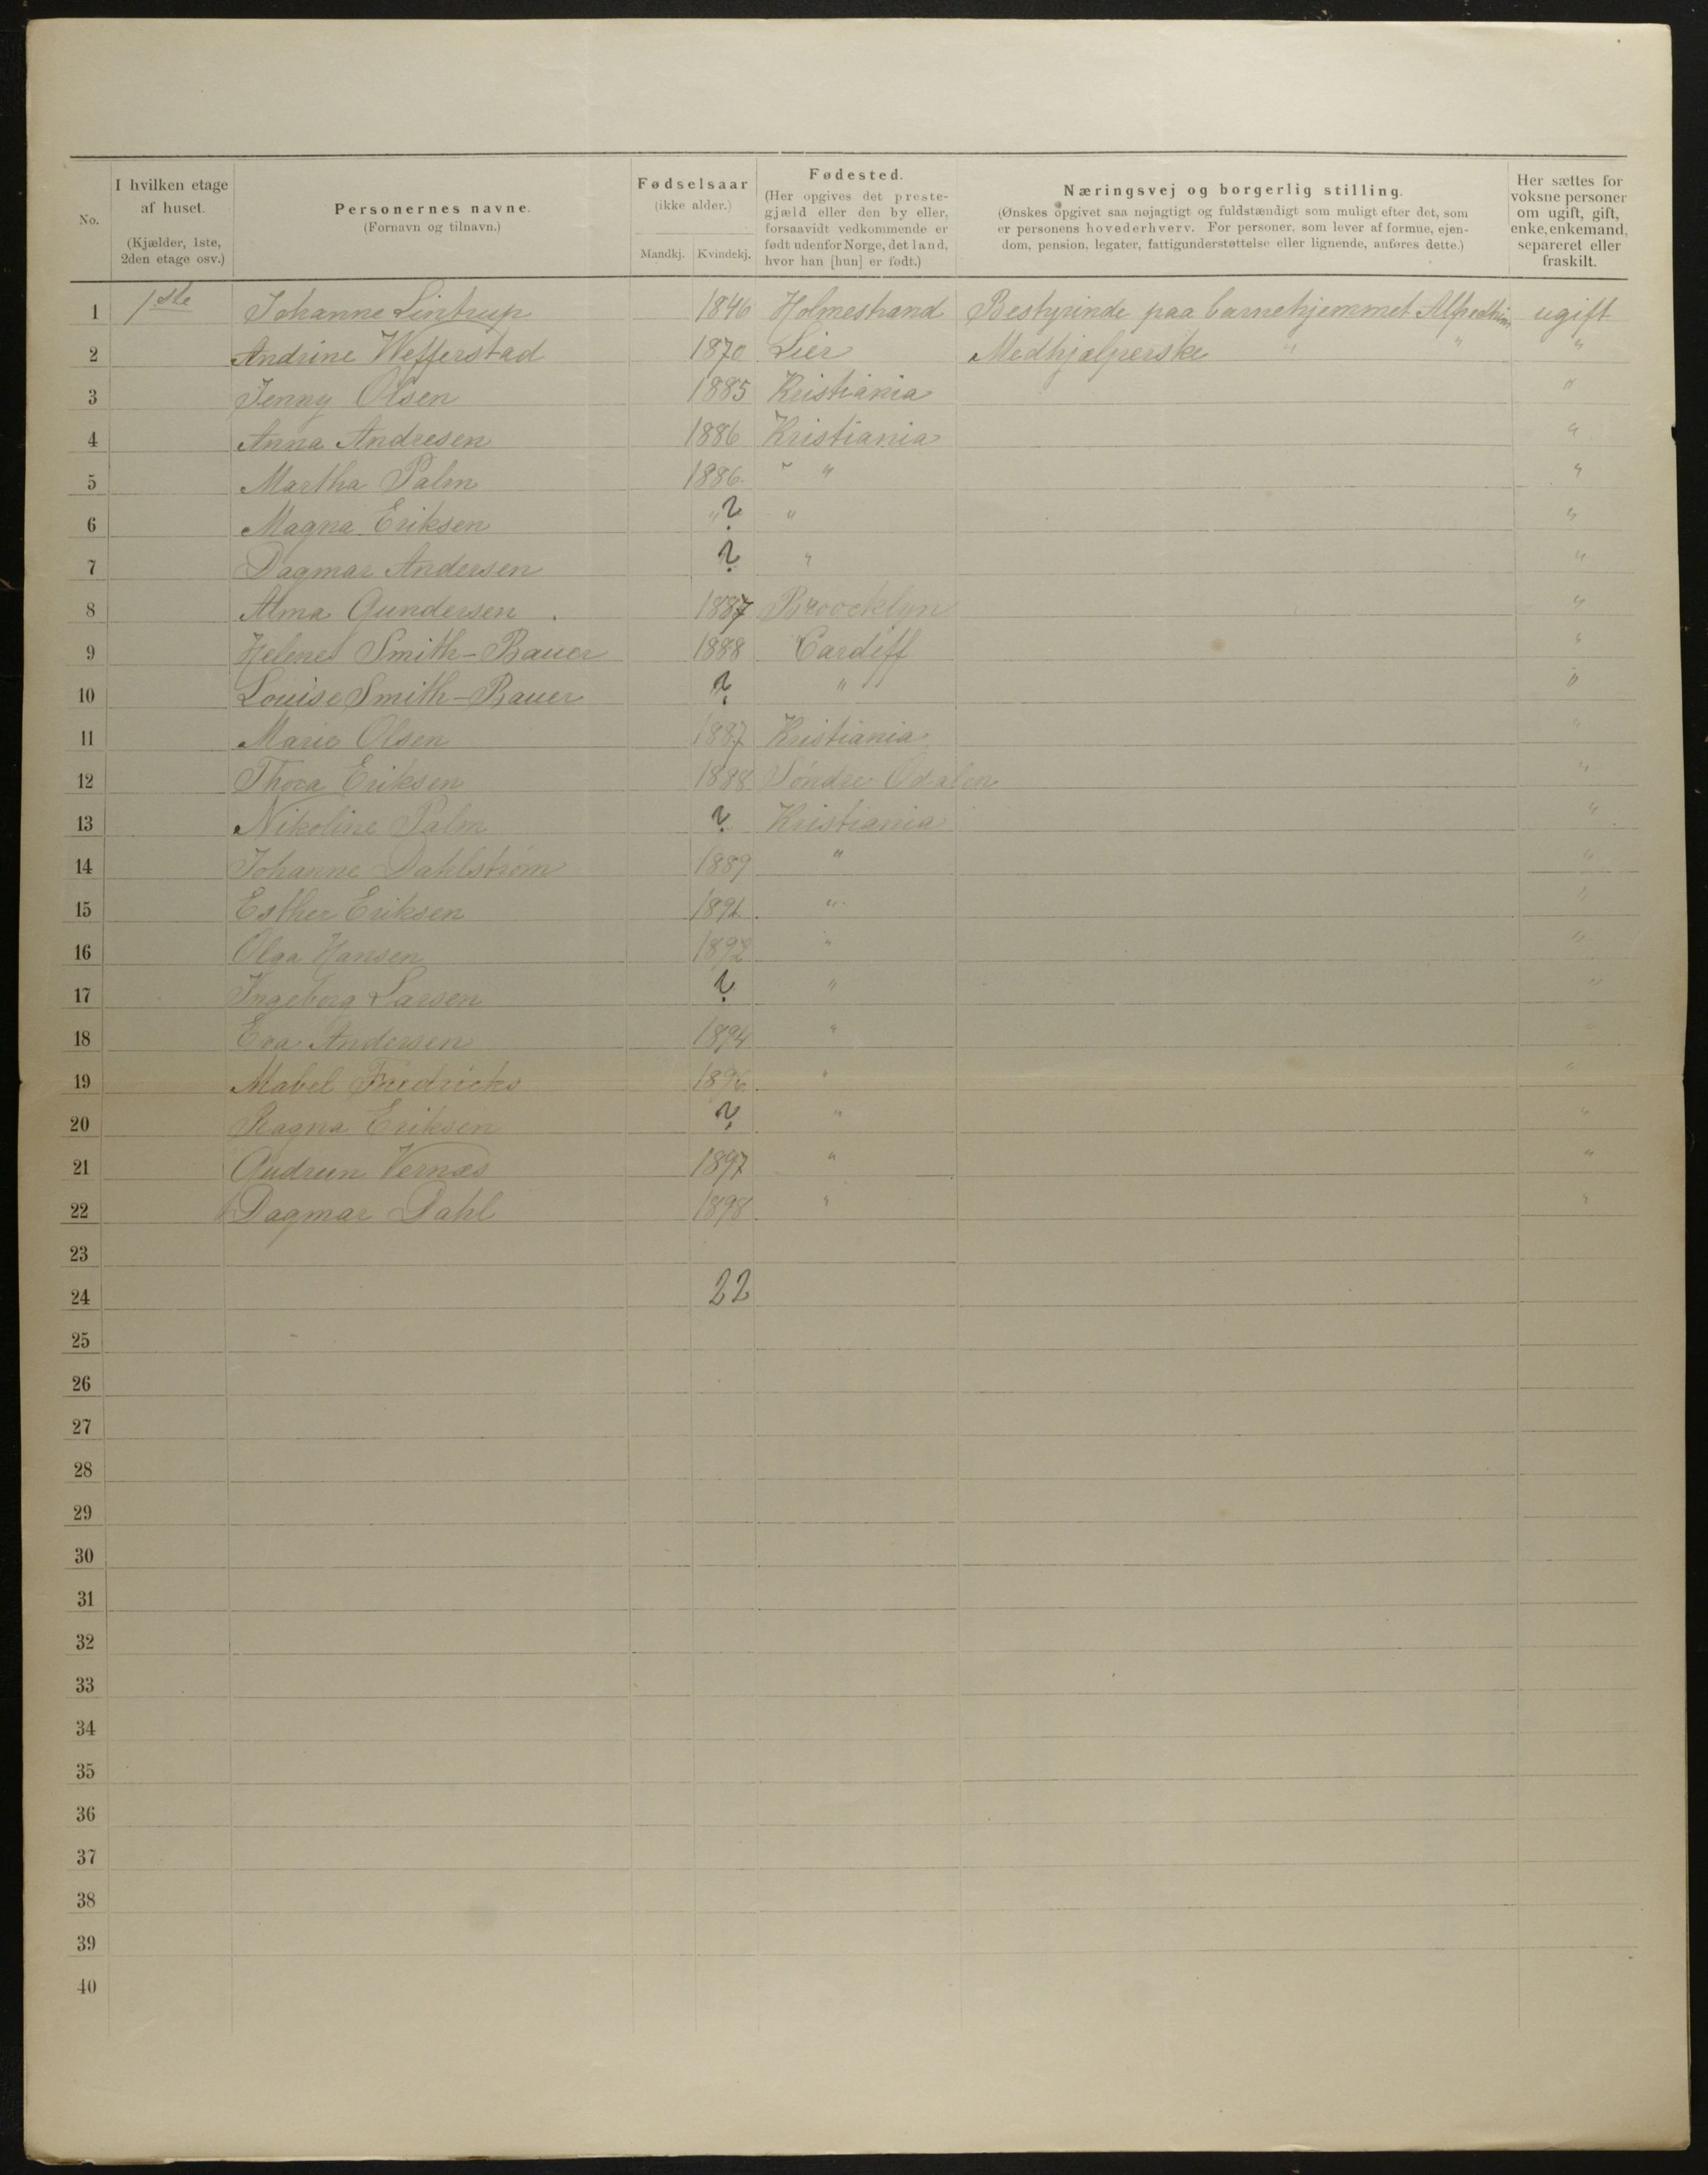 No.
I hvilken etage af huset.
(Kjælder, 1ste, 2den etage osv.)
Personernes navne.
(Fornavn og tilnavn.)
Fødselsaar
(ikke alder.)
Mandkj. Kvindekj.
Fødested.
(Her opgives det preste-
gjæld eller den by eller,
forsaavidt vedkommende er
født udenfor Norge, det land,
hvor han [hun] er født.)
Næringsvej og borgerlig stilling.
(Ønskes opgivet saa nøjagtigt og fuldstændigt som muligt efter det, som
er personens hovederhverv. For personer, som lever af formue, ejen-
dom, pension, legater, fattigunderstøttelse eller lignende, anføres dette.)
Her sættes for
voksne personer
om ugift, gift,
enke, enkemand,
separeret eller
fraskilt.
1 1ste Johanne Lintrup 1846 Holmestrand Bestyrinde paa barnehjemmet Alfredhjem ugift
2 Andrine Wefferstad 1870 Lier Medhjælperske " " "
3 Jenny Olsen 1885 Kristiania "
4 Anna Andresen 1886 Kristiania "
5 Martha Palm 1886 " " "
6 Magna Eriksen " ? " "
7 Dagmar Andersen ? " "
8 Alma Gundersen 1887 Broocklyn "
9 Helene Smith-Bauer 1888 Cardiff "
10 Louise Smith-Bauer ? " "
11 Marie Olsen 1887 Kristiania "
12 Thora Eriksen 1888 Søndre Odalen "
13 Nikoline Palm ? Kristiania "
14 Johanne Dahlstrøm 1889 " "
15 Esther Eriksen 1891 " "
16 Olga Hansen 1892 " "
17 Ingeborg Larsen ? " "
18 Eva Andersen 1894 "
19 Mabel Fredricks 1896 " "
20 Ragna Eriksen ? " "
21 Gudrun Vernæs 1897 " "
22 Dagmar Dahl 1898 " "
23
24 22
25
26
27
28
29
30
31
32
33
34
35
36
37
38
39
40